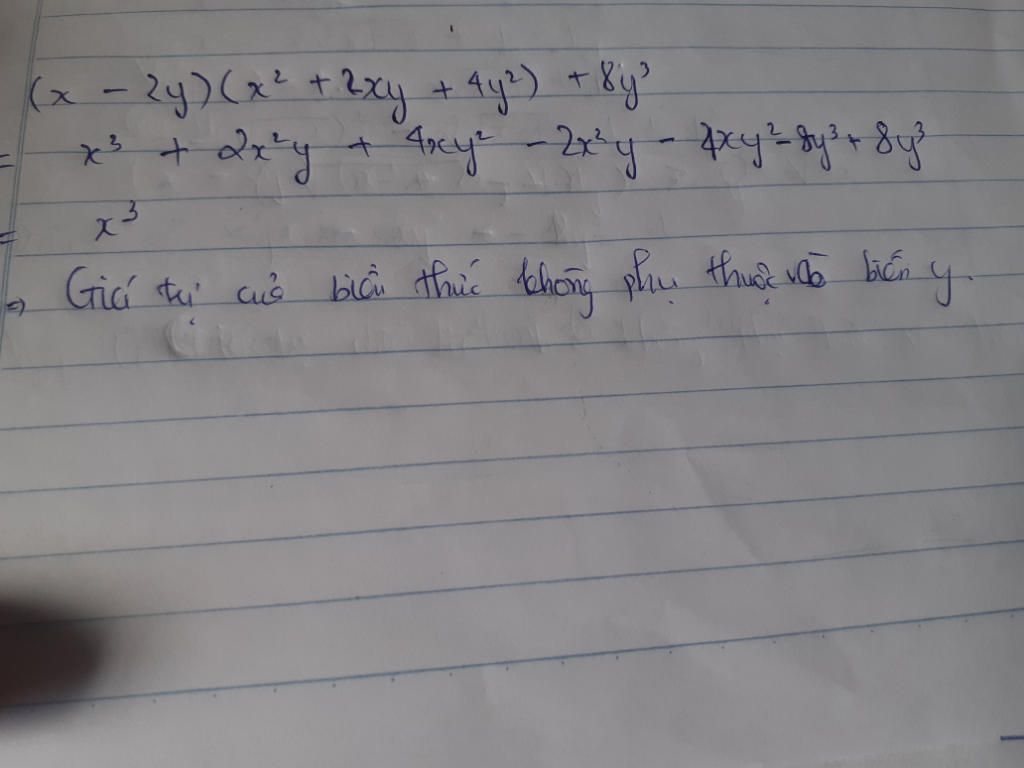 (x - 2y)(x² + 2xy + 4y²) + 8y³
= x³ + 2x²y + 4xy² - 2x²y - 4xy² - 8y³ + 8y³
= x³
=> Giá trị củả biểu thức không phụ thuộc vào biến y.